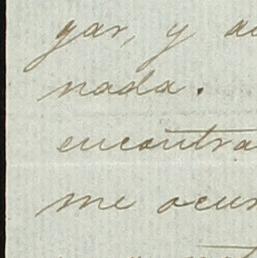 gar, y a
nada.
encontra
me ocur